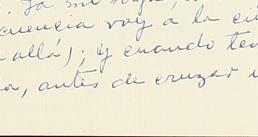 cuencia voy a la ci
allá); y cuando ten
, antes de cruzar